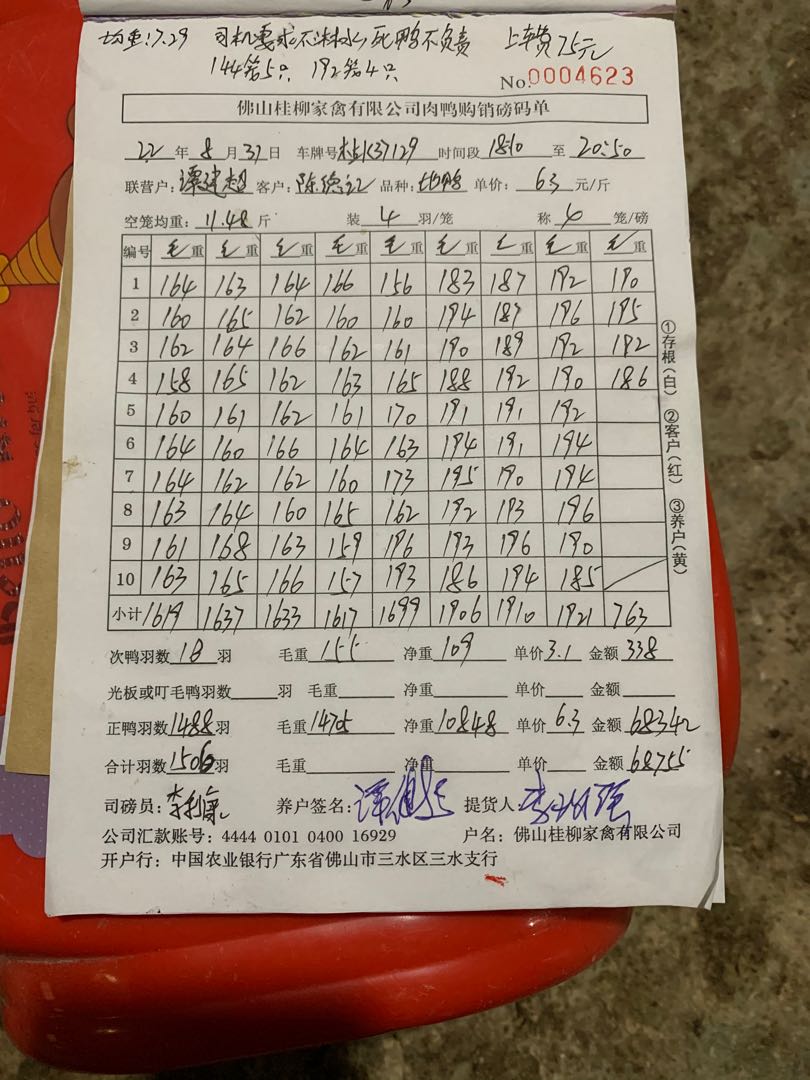 均重:7.29 司机要求不淋水,死鸭不负责 上车费75元
144笼5只 192笼4只
No.0004623
佛山桂柳家禽有限公司肉鸭购销磅码单
22年8月31日 车牌号桂K37129 时间段18:10至20:50
联营户:谭建超 客户:陈德 品种: 单价:6.3元/斤
空笼均重:11.48斤 装4羽/笼 称 笼/磅
编号 毛重 毛重 毛重 毛重 毛重 毛重 毛重 毛重 毛重
1 164 163 164 166 156 183 187 192 190
2 160 165 162 160 160 194 187 196 195
3 162 164 166 162 161 190 189 192 192
4 158 165 162 163 165 188 192 190 186
5 160 161 162 161 170 191 191 192
6 164 160 166 164 163 194 191 194
7 164 162 162 160 173 195 190 194
8 163 164 160 165 162 192 193 196
9 161 168 163 159 196 193 196 190
10 163 165 166 157 193 186 194 185
小计 1619 1637 1633 1617 1699 1906 1910 1921 763
次鸭羽数18羽 毛重155 净重109 单价3.1 金额338
光板或叮毛鸭羽数 羽 毛重 净重 单价 金额
正鸭羽数1488羽 毛重14705 净重10848 单价6.3 金额68342
合计羽数1506羽 毛重 净重 单价 金额68755
司磅员: 养户签名: 提货人:
公司汇款账号:4444 0101 0400 16929 户名:佛山桂柳家禽有限公司
开户行:中国农业银行广东省佛山市三水区三水支行
①存根(白) ②客户(红) ③养户(黄)